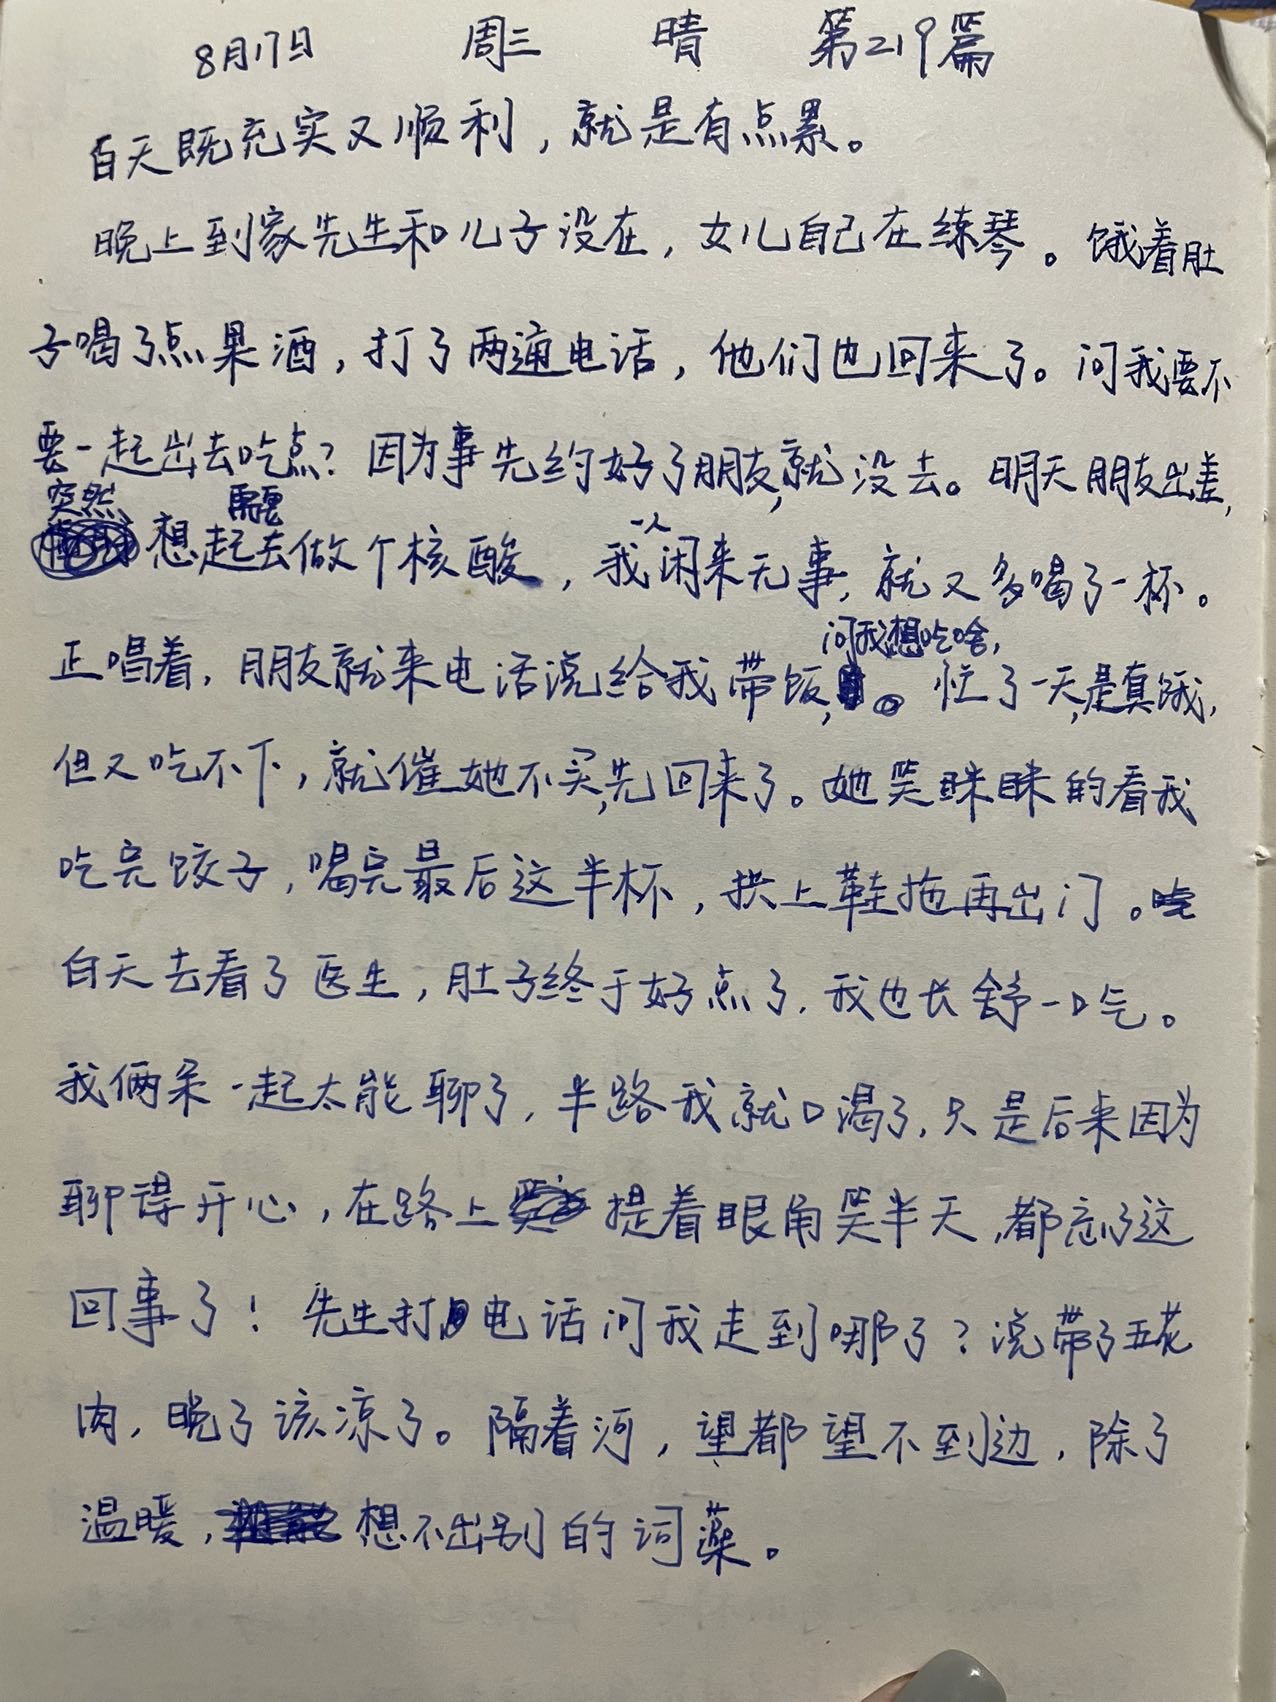 8月17日 周三 晴 第219篇
白天既充实又顺利，就是有点累。
晚上到家先生和儿子没在，女儿自己在练琴。饿着肚
子喝了点果酒，打了两通电话，他们也回来了。问我要不
要一起出去吃点？因为事先约好了朋友,就没去。明天朋友出差,
突然想起需要去做个核酸，我一人闲来无事，就又多喝了一杯。
正喝着，朋友就来电话说给我带饭，问我想吃啥，忙了一天,是真饿，
但又吃不下，就催她不买,先回来了。她笑眯眯的看我
吃完饺子，喝完最后这半杯，换上鞋拖再出门。
白天去看了医生，肚子终于好点了，我也长舒一口气。
我俩呆一起太能聊了，半路我就口渴了，只是后来因为
聊得开心，在路上提着眼角笑半天，都忘了这
回事了！先生打电话问我走到哪了？说带了五花
肉，晚了该凉了。隔着河，望都望不到边，除了
温暖，想不出别的词藻。